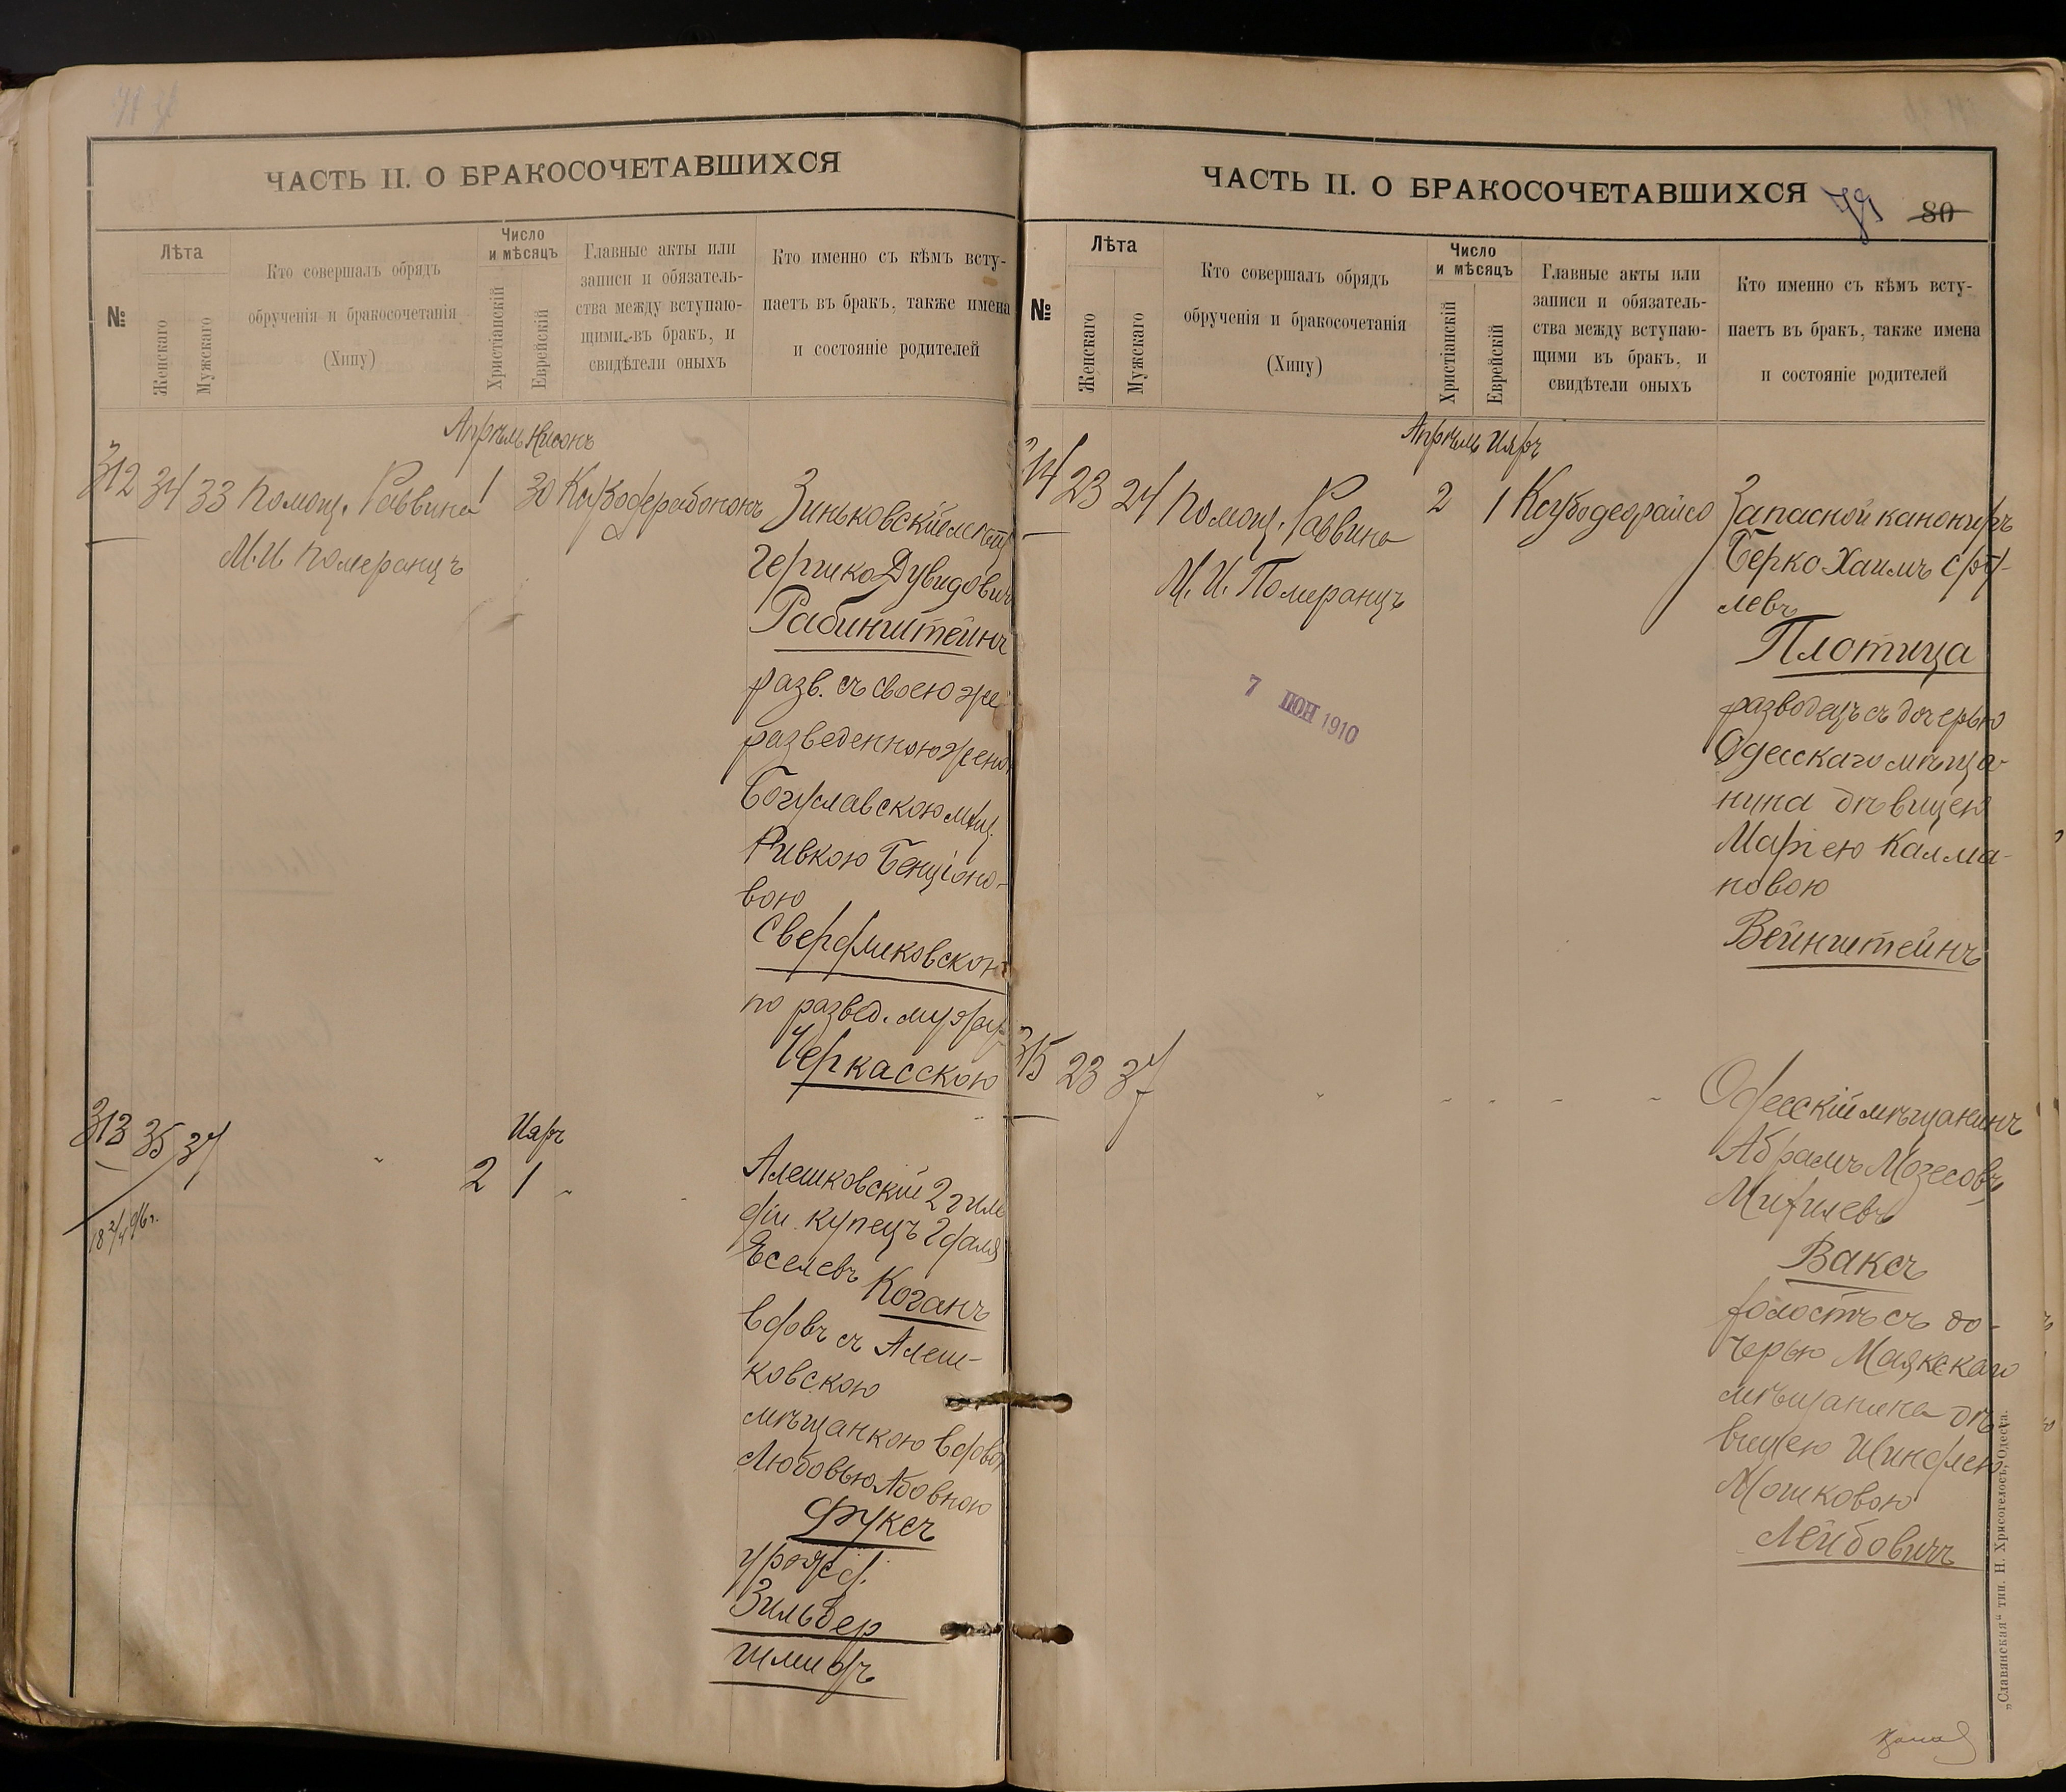 ЧАСТЬ II. О БРАКОСОЧЕТАВШИХСЯ
№
Лѣта
Женскаго
Мужскаго
Кто совершалъ обрядъ
обрученія и бракосочетанія
(Хипу)
Число
и мѣсяцъ
Христіанскій
Еврейскій
Главные акты или
записи и обязатель-
ства между вступаю-
щими въ бракъ, и
свидѣтели оныхъ
Кто именно съ кѣмъ всту-
паетъ въ бракъ, также имена
и состояніе родителей
Апрѣль Нисонъ
312 34 33 Помощ. Раввина 1 30
М. И. Померанцъ
Зиньковскій мѣщ
Гершко Дувидовичъ
Рабинштейнъ
разв. съ своею же
разведенною женою
Богуславскою мѣщ.
Ривкою Бенціоно-
вою
Свердликовскою
по развед. мужу
Черкасскою
Ияръ
313 35 37 " 2 1 " "
18 2/4 96 г.
Алешковскій 2 гиль
діи купецъ Гдаля
Іоселевъ Коганъ
вдовъ съ Алеш-
ковскою
мѣщанкою вдовою
Любовью Абовною
Фуксъ
урожд.
Зильбер
шмидъ
ЧАСТЬ II. О БРАКОСОЧЕТАВШИХСЯ
79 80
№
Лѣта
Женскаго
Мужскаго
Кто совершалъ обрядъ
обрученія и бракосочетанія
(Хипу)
Число
и мѣсяцъ
Христіанскій
Еврейскій
Главные акты или
записи и обязатель-
ства между вступаю-
щими въ бракъ, и
свидѣтели оныхъ
Кто именно съ кѣмъ всту-
паетъ въ бракъ, также имена
и состояніе родителей
Апрѣль Ияръ
314 23 24 Помощ. Раввина 2 1
М. И. Померанцъ
7 ІЮН 1910
Запасной канониръ
Берко Хаимъ Сру-
левъ
Плотица
разводецъ съ дочерью
Одесскаго мѣща-
нина дѣвицею
Маріею Калма-
новою
Вейнштейнъ
315 23 37 " " " " "
Одесскій мѣщанинъ
Абрамъ Мозесовъ
Ваксъ
холостъ съ до-
черью Маякскаго
мѣщанина дѣ-
вицею Шиндлею
Мошковою
Лейбовичъ
„Славянская“ тип. Н. Хрисогелосъ, Одесса.